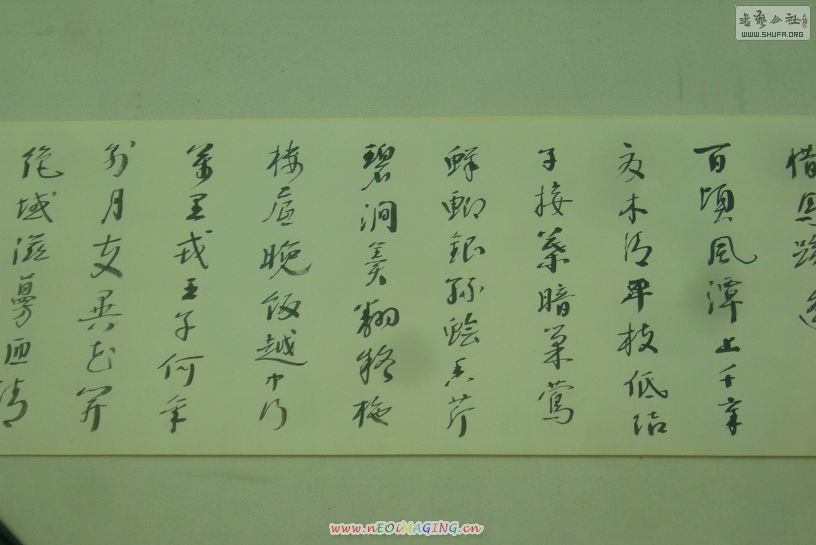 惜馬蹄遥
百頃風潭上千章
夏木清卑枝低結
子接葉暗巢鶯
鮮鯽銀絲鱠香芹
碧澗羹翻疑柂
樓底晚飯越中行
萬里戎王子何年
別月支異花開
絕域滋蔓匝清
書藝公社
WWW.SHUFA.ORG
www.nEOiMAGING.cn